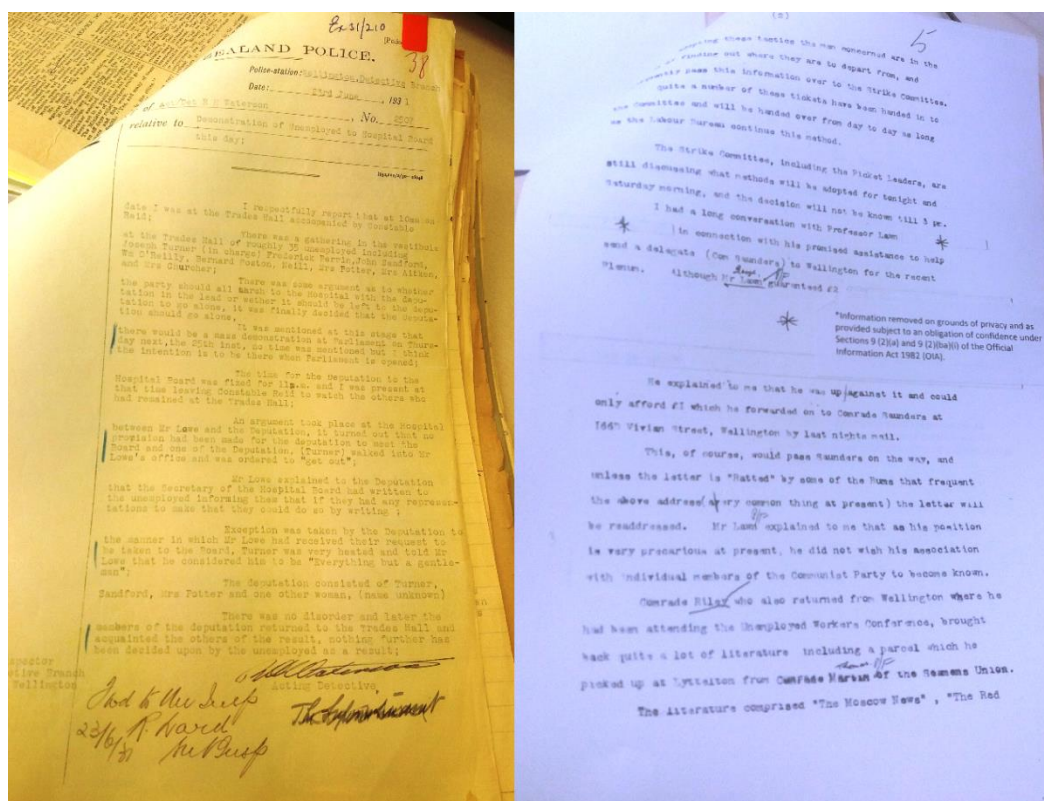 Ex 31/210
38
EALAND POLICE.
Police-station: Wellington, Detective Branch
Date: 23rd June, 1931
of Act/Det
No.
relative to Demonstration of Unemployed to Hospital Board
this day;
I respectfully report that at 10am
date I was at the Trades Hall accompanied by Constable
Reid;
There was a gathering in the vestibule
at the Trades Hall of roughly 35 unemployed including
Joseph Turner (in charge) Frederick Perrie, John Sandford,
Wm O'Reilly, Bernard Poston, Neill, Mrs Potter, Mrs Aitken,
and Mrs Churcher;
There was some argument as to whether
the party should all march to the Hospital with the depu-
tation in the lead or wether it should be left to the depu-
tation to go alone, it was finally decided that the Deputa-
tion should go alone,
It was mentioned at this stage that
there would be a mass demonstration at Parliament on Thurs-
day next, the 25th inst, no time was mentioned but I think
the intention is to be there when Parliament is opened;
The time for the Deputation to the
Hospital Board was fixed for 11a.m. and I was present at
that time leaving Constable Reid to watch the others who
had remained at the Trades Hall;
An argument took place at the Hospital
between Mr Lowe and the Deputation, it turned out that no
provision had been made for the deputation to meet the
Board and one of the Deputation, (Turner) walked into Mr
Lowe's office and was ordered to "get out";
Mr Lowe explained to the Deputation
that the Secretary of the Hospital Board had written to
the unemployed informing them that if they had any represen-
tations to make that they could do so by writing ;
Exception was taken by the Deputation to
the manner in which Mr Lowe had received their request to
be taken to the Board, Turner was very heated and told Mr
Lowe that he considered him to be "Everything but a gentle-
man";
The Deputation consisted of Turner,
Sandford, Mrs Potter and one other woman, (name unknown)
There was no disorder and later the
members of the deputation returned to the Trades Hall and
acquainted the others of the result, nothing further has
been decided upon by the unemployed as a result;
Acting Detective
spector
ctive Branch
Wellington
23/6/31 R. Ward
(2)
5
these tactics the men concerned are in the
finding out where they are to depart from, and
pass this information over to the Strike Committee.
Quite a number of these tickets have been handed in to
the Committee and will be handed over from day to day as long
as the Labour Bureau continue this method.
The Strike Committee, including the Picket Leaders, are
still discussing what methods will be adopted for tonight and
Saturday morning, and the decision will not be known till 3 pm.
I had a long conversation with Professor Lawn
* ] in connection with his promised assistance to help * ]
send a delegate (Com Saunders) to Wellington for the recent
Plenum. Although Mr Lawn guaranteed £2
*
*Information removed on grounds of privacy and as
provided subject to an obligation of confidence under
Sections 9 (2)(a) and 9 (2)(ba)(i) of the Official
Information Act 1982 (OIA).
He explained to me that he was up against it and could
only afford £1 which he forwarded on to Comrade Saunders at
Vivian Street, Wellington by last nights mail.
This, of course, would pass Saunders on the way, and
unless the letter is "Ratted" by some of the Bums that frequent
the above address (a very common thing at present) the letter will
be readdressed. Mr Lawn explained to me that as his position
is very precarious at present, he did not wish his association
with individual members of the Communist Party to become known.
Comrade Riley who also returned from Wellington where he
had been attending the Unemployed Workers Conference, brought
back quite a lot of literature including a parcel which he
picked up at Lyttelton from Comrade Martin of the Seamens Union.
The literature comprised "The Moscow News", "The Red